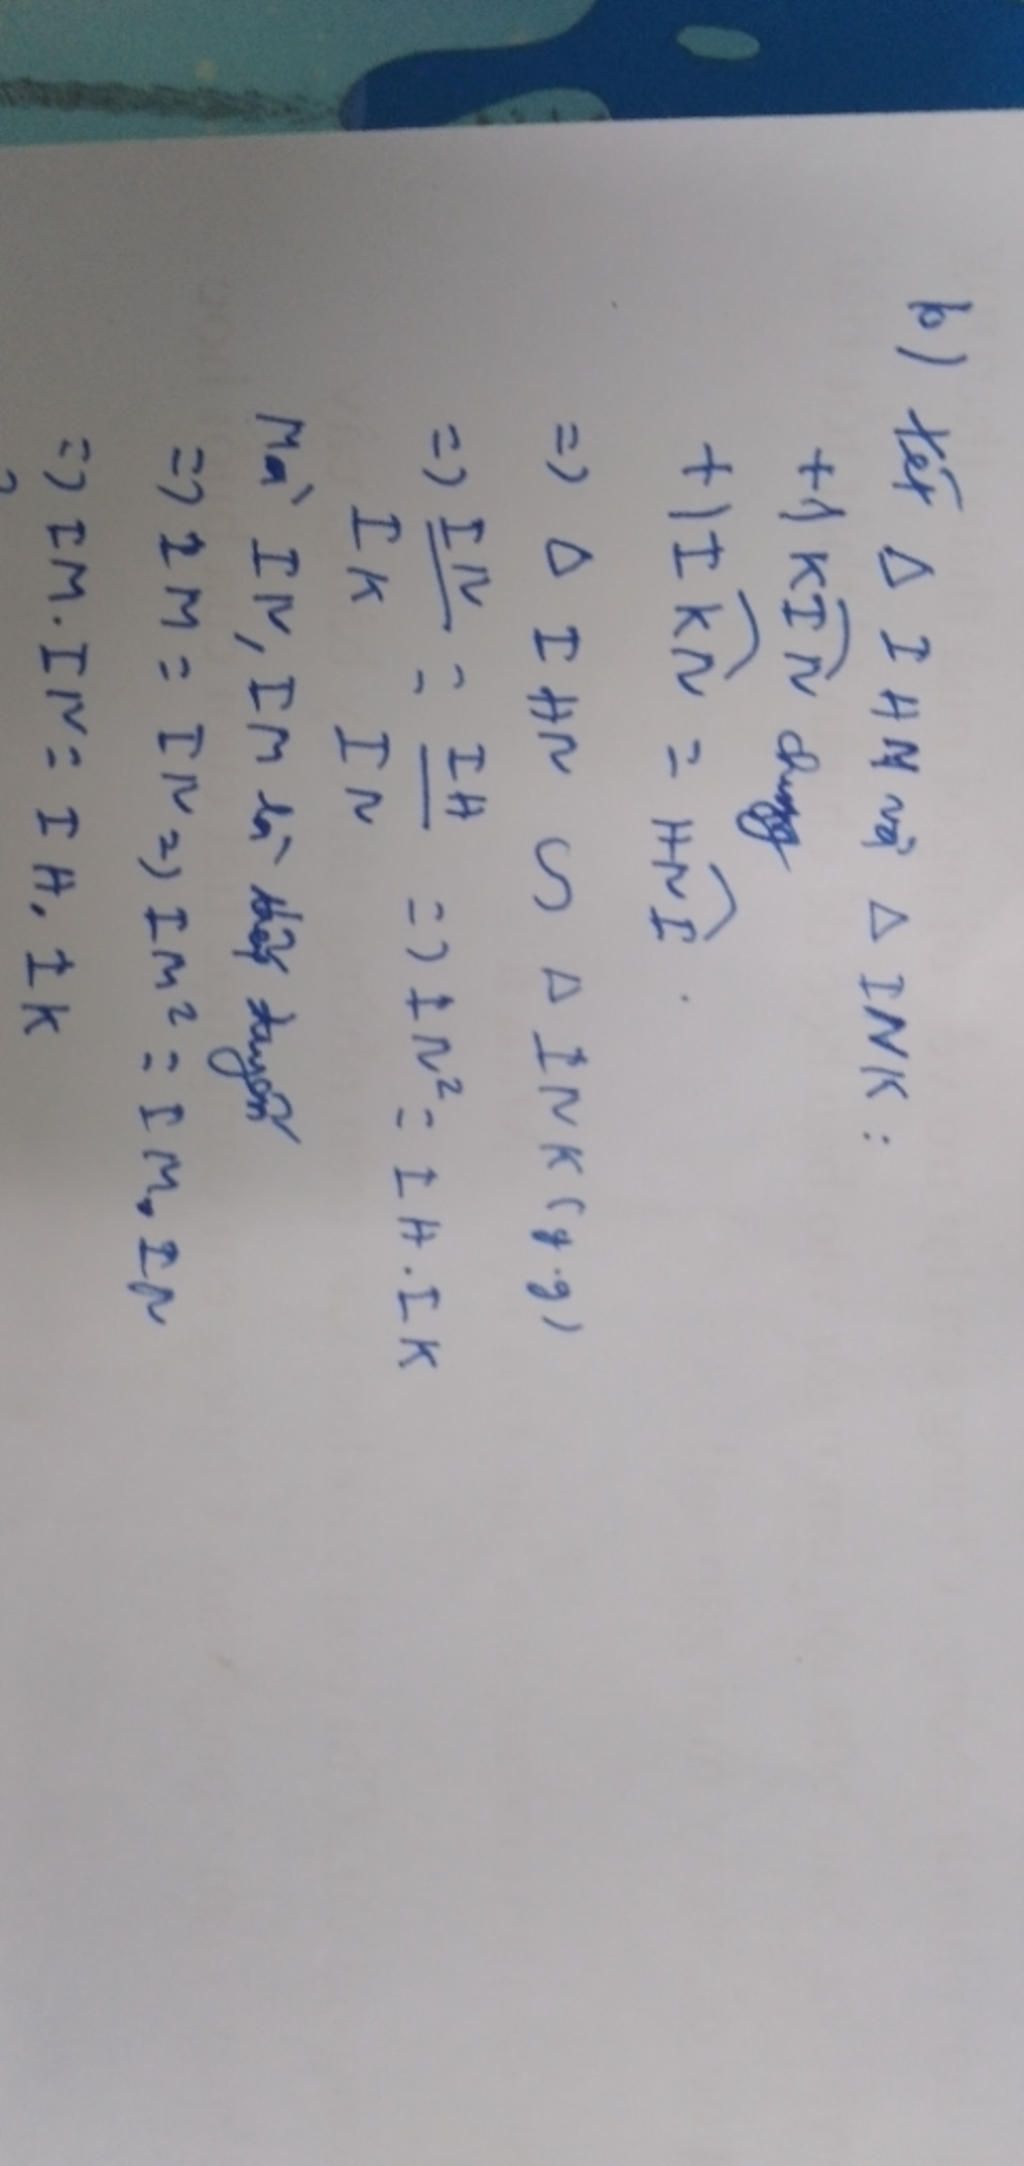 b) Xét Δ IHN và Δ INK :
+) KIN chung
+) IKN = HNI .
=) Δ IHN ∽ Δ INK (g.g)
=) IN/IK = IH/IN =) IN² = IH.IK
Mà IN, IM là tiếp tuyến
=) IM = IN =) IM² = IM.IN
=) IM.IN = IH.IK